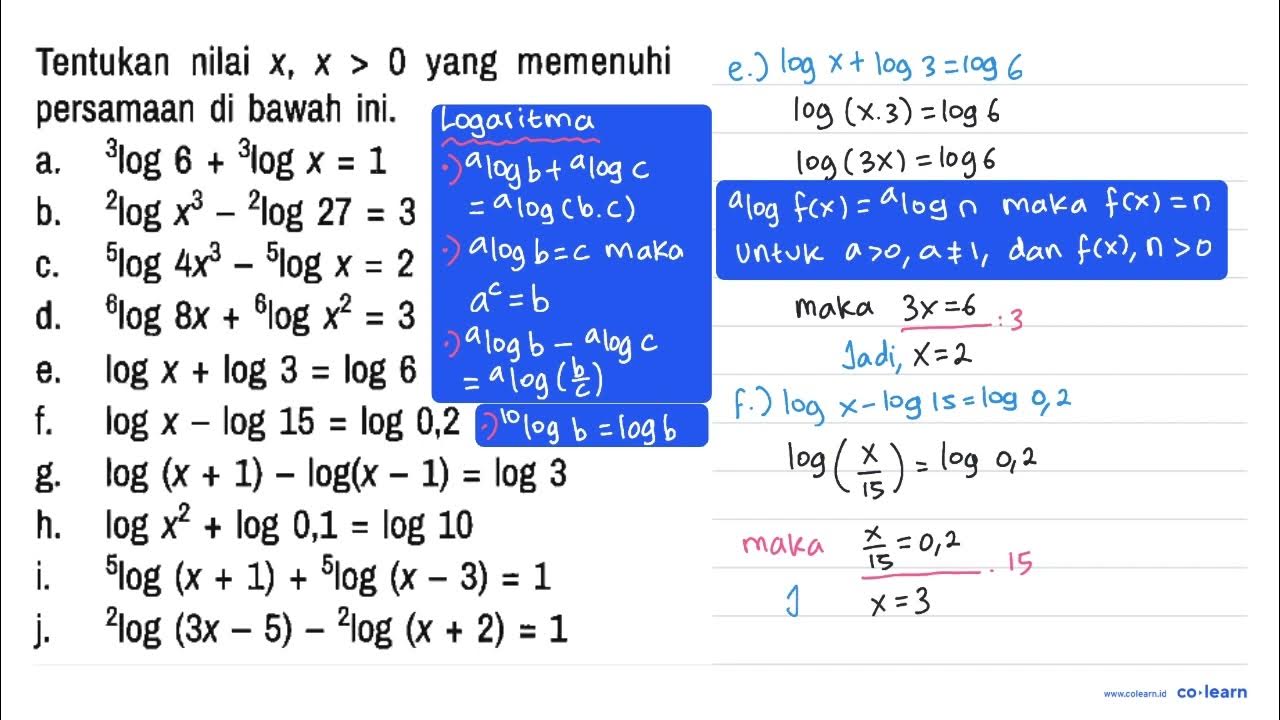 Tentukan nilai x, x > 0 yang memenuhi
persamaan di bawah ini.
a. ³log 6 + ³log x = 1
b. ²log x³ − ²log 27 = 3
c. ⁵log 4x³ − ⁵log x = 2
d. ⁶log 8x + ⁶log x² = 3
e. log x + log 3 = log 6
f. log x − log 15 = log 0,2
g. log (x + 1) − log(x − 1) = log 3
h. log x² + log 0,1 = log 10
i. ⁵log (x + 1) + ⁵log (x − 3) = 1
j. ²log (3x − 5) − ²log (x + 2) = 1
Logaritma
·) ᵃlog b + ᵃlog c
= ᵃlog (b.c)
·) ᵃlog b = c maka
aᶜ = b
·) ᵃlog b − ᵃlog c
= ᵃlog (b/c)
·) ¹⁰log b = log b
e.) log x + log 3 = log 6
log (x.3) = log 6
log (3x) = log 6
ᵃlog f(x) = ᵃlog n maka f(x) = n
untuk a > 0, a ≠ 1, dan f(x), n > 0
maka 3x = 6
: 3
Jadi, x = 2
f.) log x − log 15 = log 0,2
log (x/15) = log 0,2
maka x/15 = 0,2
. 15
J x = 3
www.colearn.id co·learn